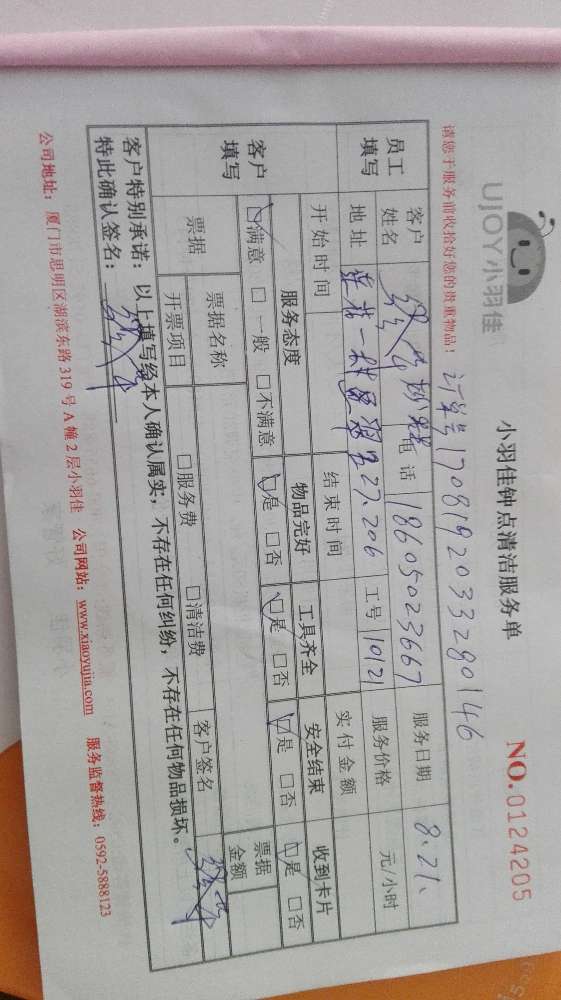 UJOY小羽佳
小羽佳钟点清洁服务单
NO.0124205
请您于服务前收拾好您的贵重物品！ 订单号1708192033280146
员工填写 客户姓名 电话 18605023667 服务日期 8.21.
地址 27.206 工号 10121 服务价格 元/小时
开始时间 结束时间 实付金额
客户填写 服务态度 物品完好 工具齐全 安全结束 收到卡片
☑满意 □一般 □不满意 ☑是 □否 ☑是 □否 ☑是 □否 ☑是 □否
票据 票据名称 票据金额
开票项目 □服务费 □清洁费 客户签名
客户特别承诺：以上填写经本人确认属实，不存在任何纠纷，不存在任何物品损坏。
特此确认签名：
公司地址：厦门市思明区湖滨东路 319 号 A 幢 2 层小羽佳 公司网站：www.xiaoyujia.com 服务监督热线：0592-5888123